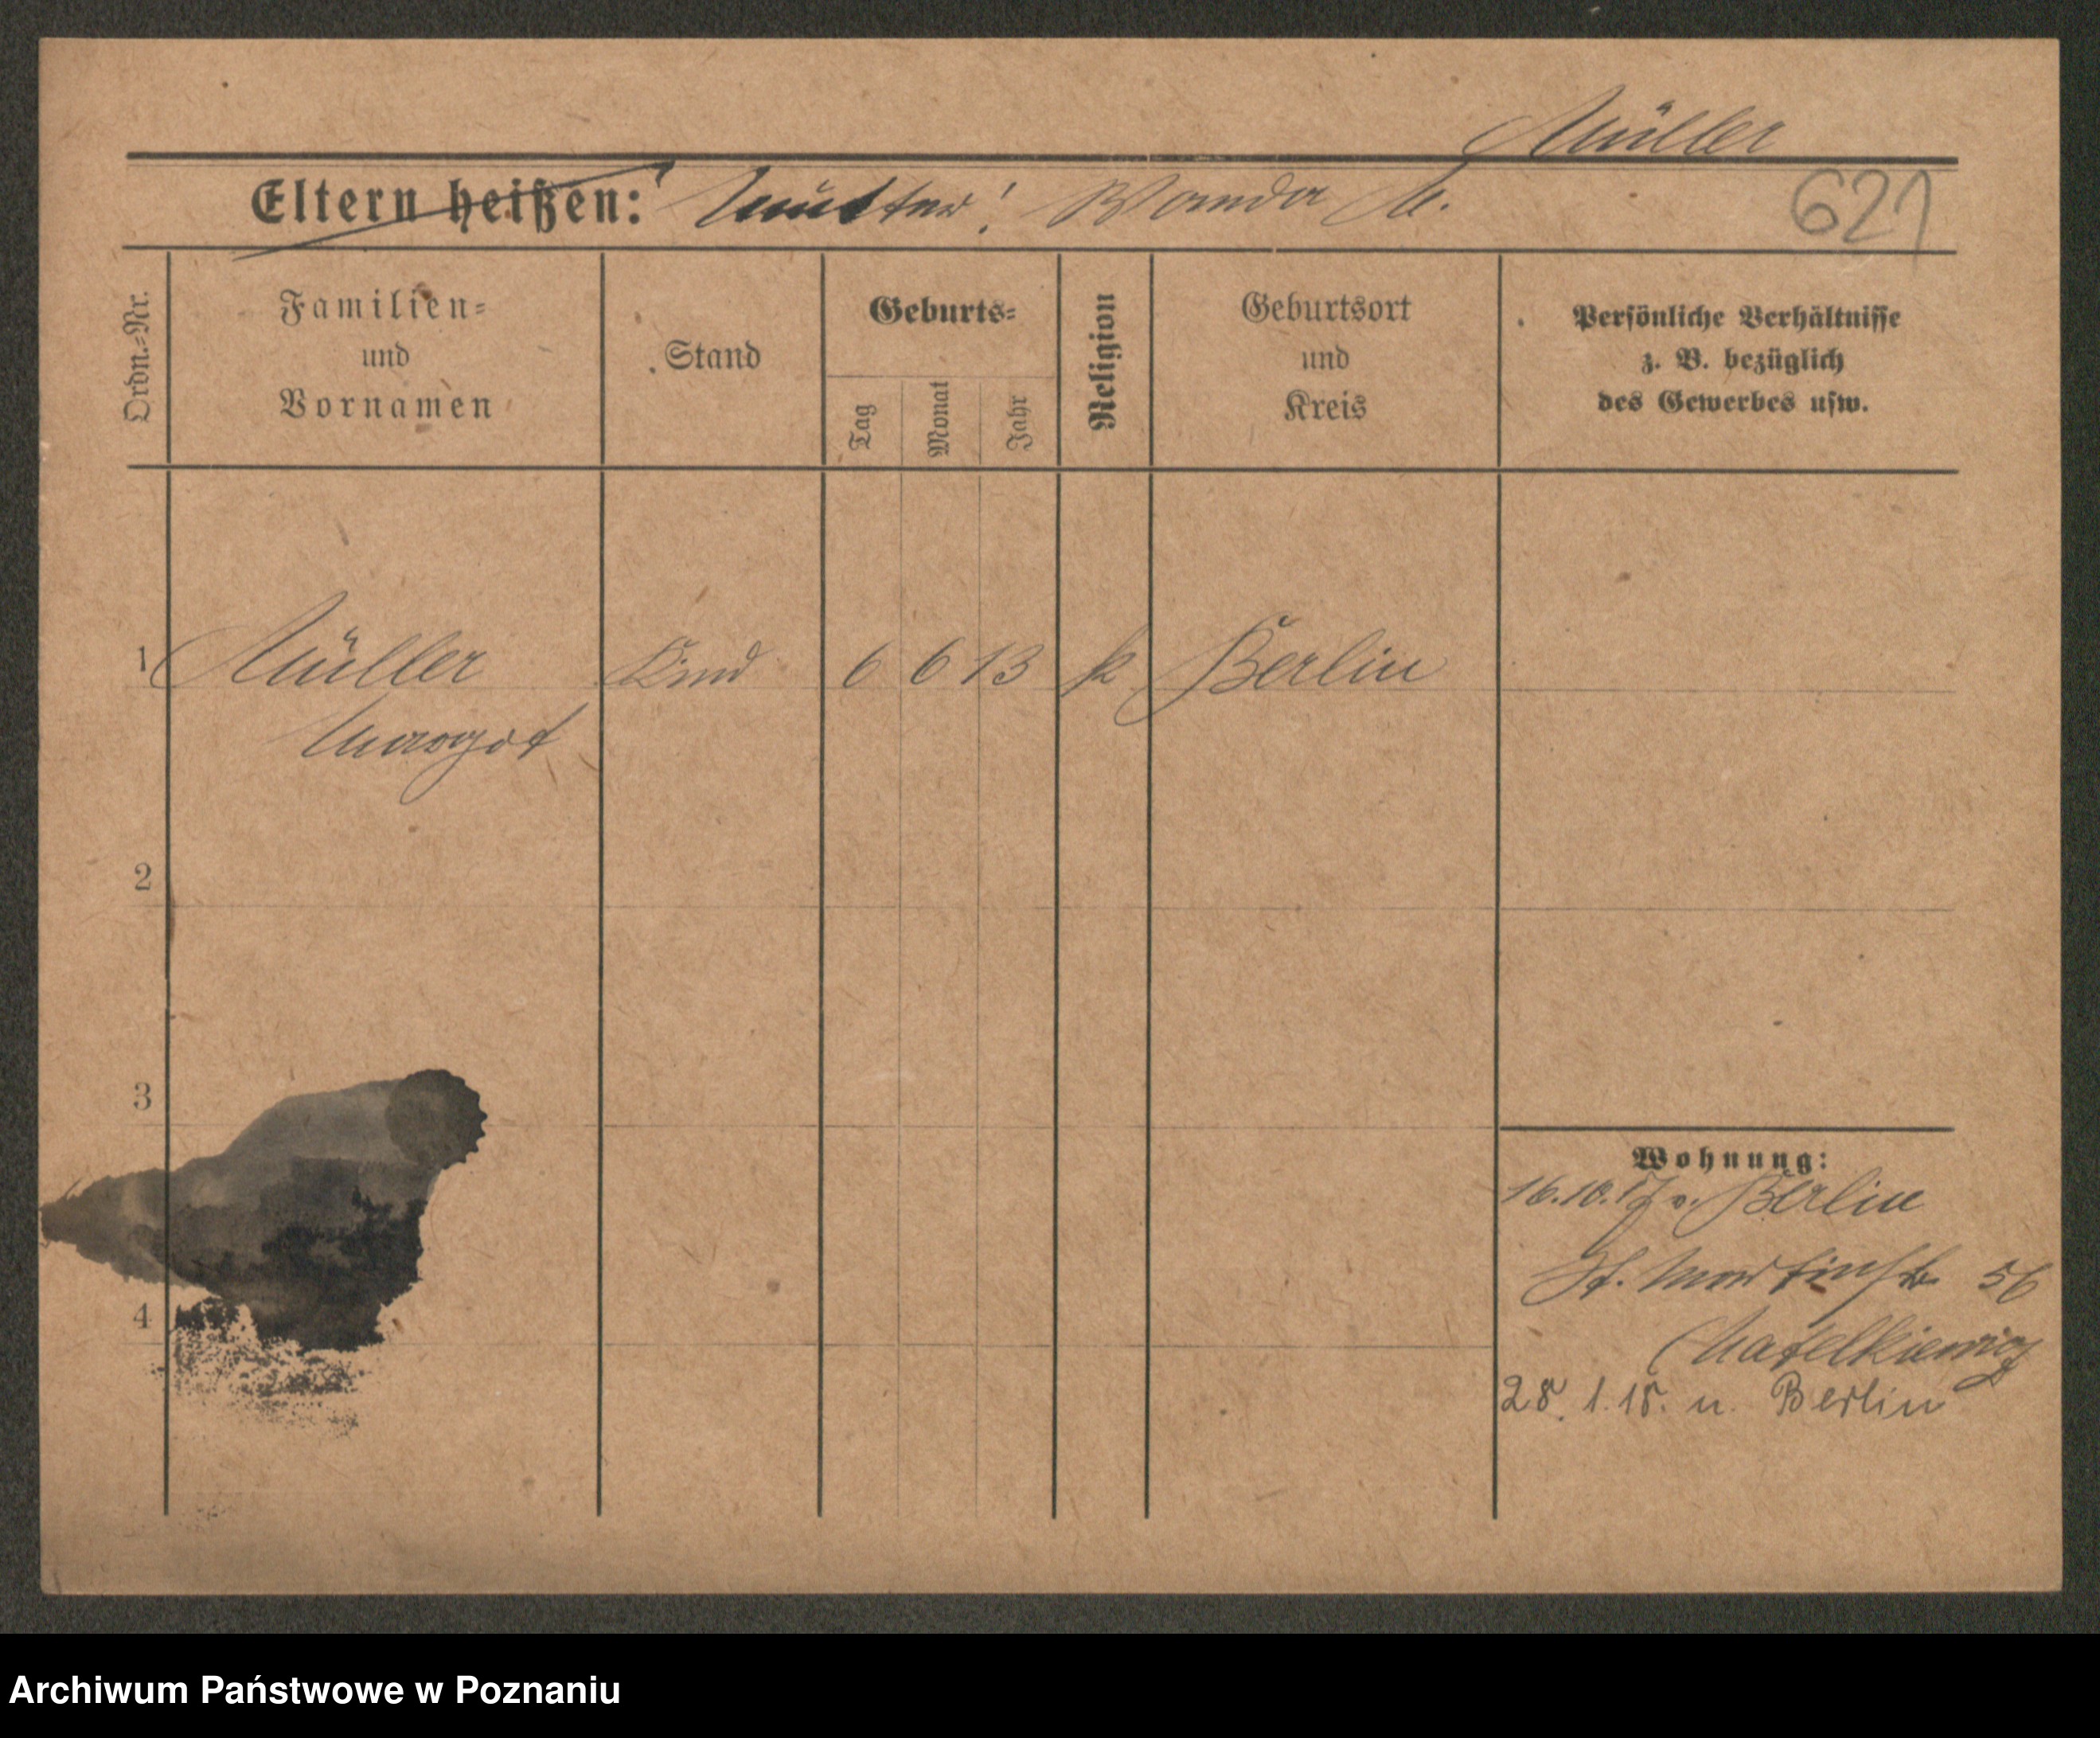 Müller
Eltern heißen: Mutter: Wanda M.
621
Ordn.-Nr.
Familien-
und
Vornamen
Stand
Geburts-
Tag
Monat
Jahr
Religion
Geburtsort
und
Kreis
Persönliche Verhältnisse
z. B. bezüglich
des Gewerbes usw.
1 Müller Kind 6 6 13 k Berlin
Margot
2
3
4
Wohnung:
16.10.17 v. Berlin
St. Martinstr. 56
Matelkiewicz
28.1.18. n. Berlin
Archiwum Państwowe w Poznaniu